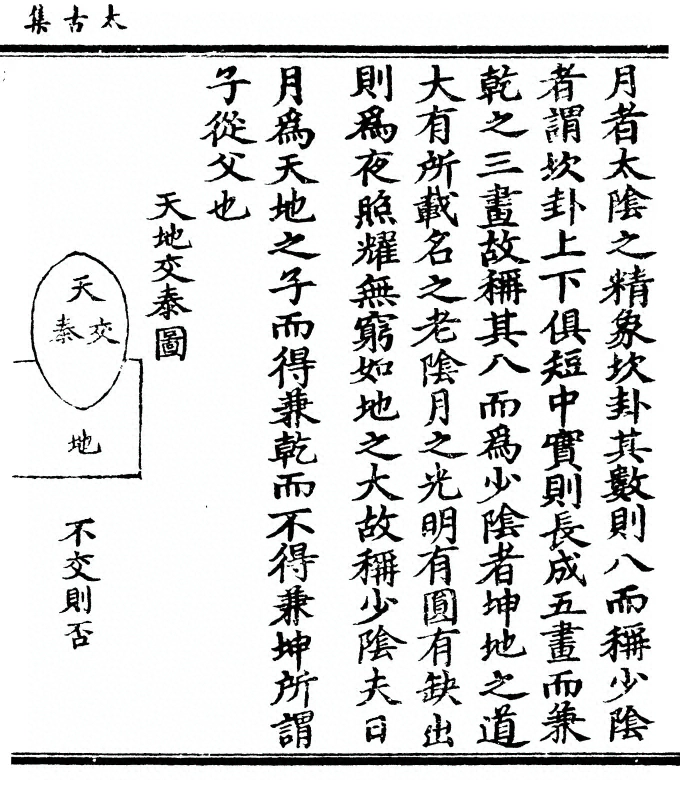 太古集
月者太陰之精象坎卦其數則八而稱少陰
者謂坎卦上下俱短中實則長成五畫而兼
乾之三畫故稱其八而爲少陰者坤地之道
大有所載名之老陰月之光明有圓有缺出
則爲夜照耀無窮如地之大故稱少陰夫日
月爲天地之子而得兼乾而不得兼坤所謂
子從父也
天地交泰圖
天
交泰
地
不交則否